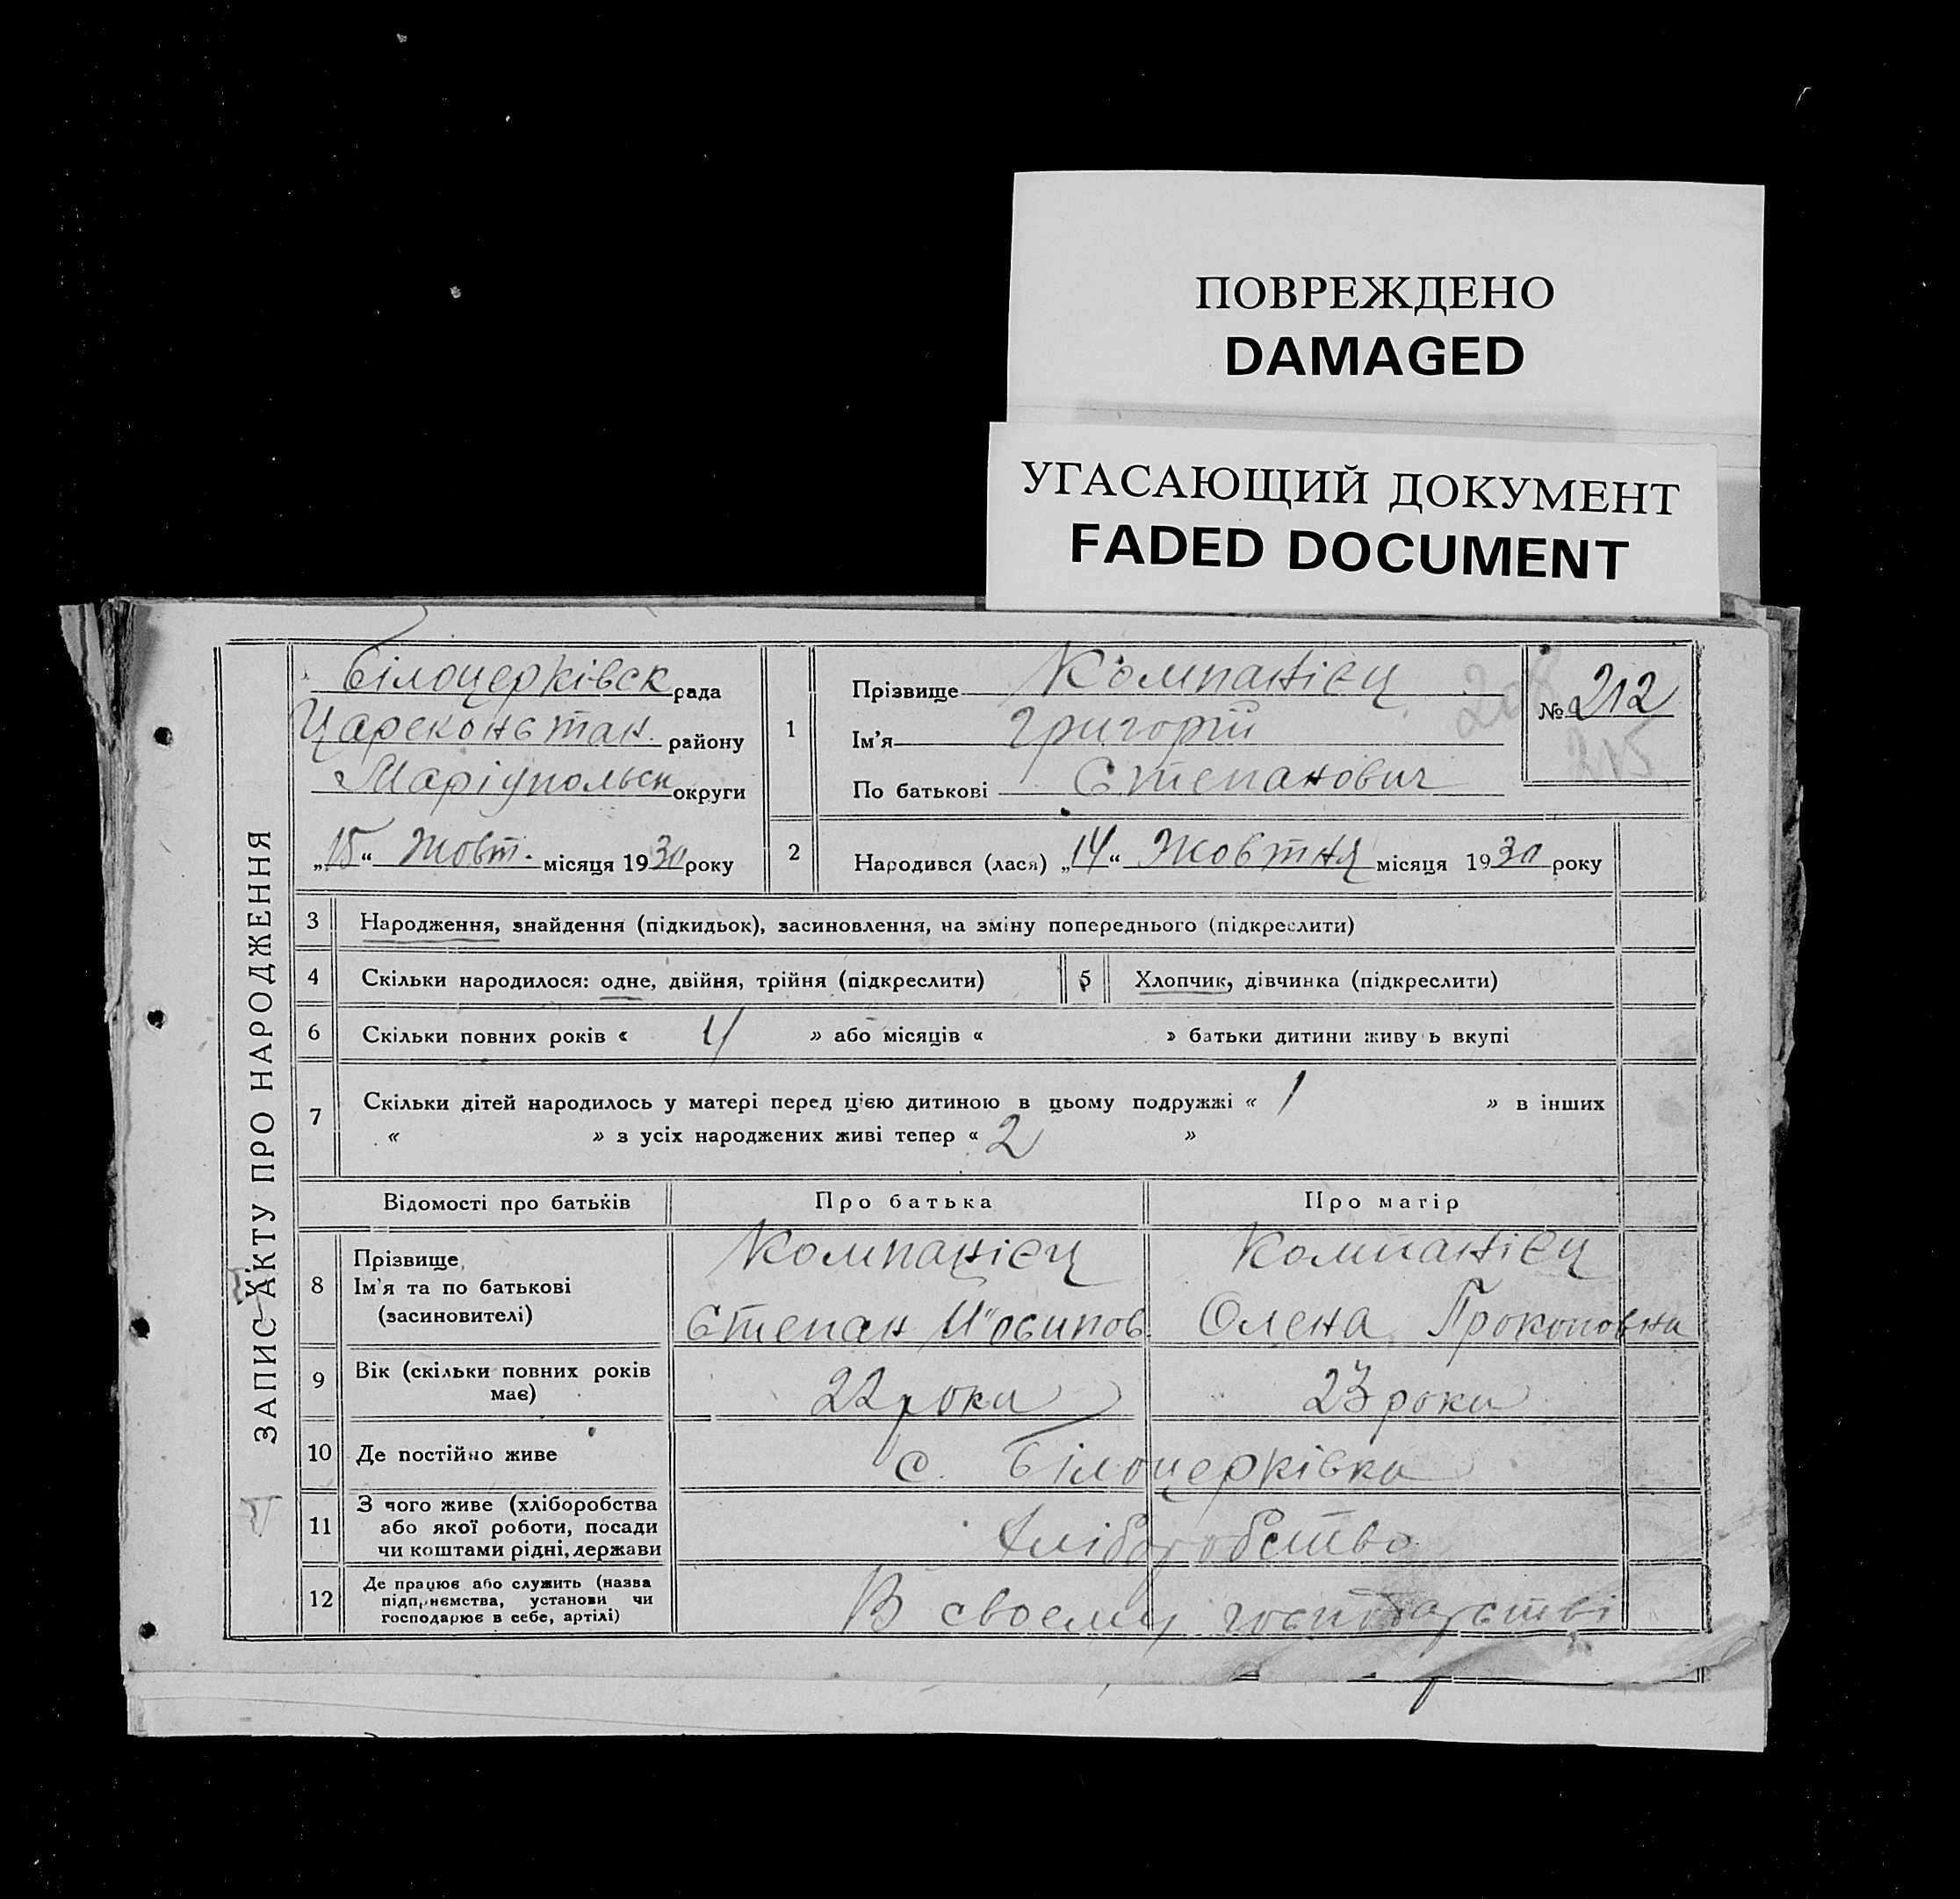 ПОВРЕЖДЕНО
DAMAGED
УГАСАЮЩИЙ ДОКУМЕНТ
FADED DOCUMENT
ЗАПИС АКТУ ПРО НАРОДЖЕННЯ
Білоцерківск рада
Цареконстан. району
Маріупольск округи
„15“ Жовт. місяця 1930 року
1
Прізвище Компанієц
Ім'я Григорій
По батькові Степанович
№ 212
208
215
2
Народився (лася) „14“ Жовтня місяця 1930 року
3 Народження, знайдення (підкидьок), засиновлення, на зміну попереднього (підкреслити)
4 Скільки народилося: одне, двійня, трійня (підкреслити)
5 Хлопчик, дівчинка (підкреслити)
6 Скільки повних років « 4 » або місяців « » батьки дитини живу ь вкупі
7 Скільки дітей народилось у матері перед цією дитиною в цьому подружжі « 1 » в інших
« » з усіх народжених живі тепер « 2 »
Відомості про батьків Про батька Про матір
8 Прізвище, Компанієц Компанієц
Ім'я та по батькові
(засиновителі) Степан Йосипов. Олена Прокоповна
9 Вік (скільки повних років має) 22 роки 23 роки
10 Де постійно живе с. Білоцерківка
11 З чого живе (хліборобства
або якої роботи, посади
чи коштами рідні, держави Хліборобство
12 Де працює або служить (назва
підприємства, установи чи
господарює в себе, артілі) В своєму господарстві